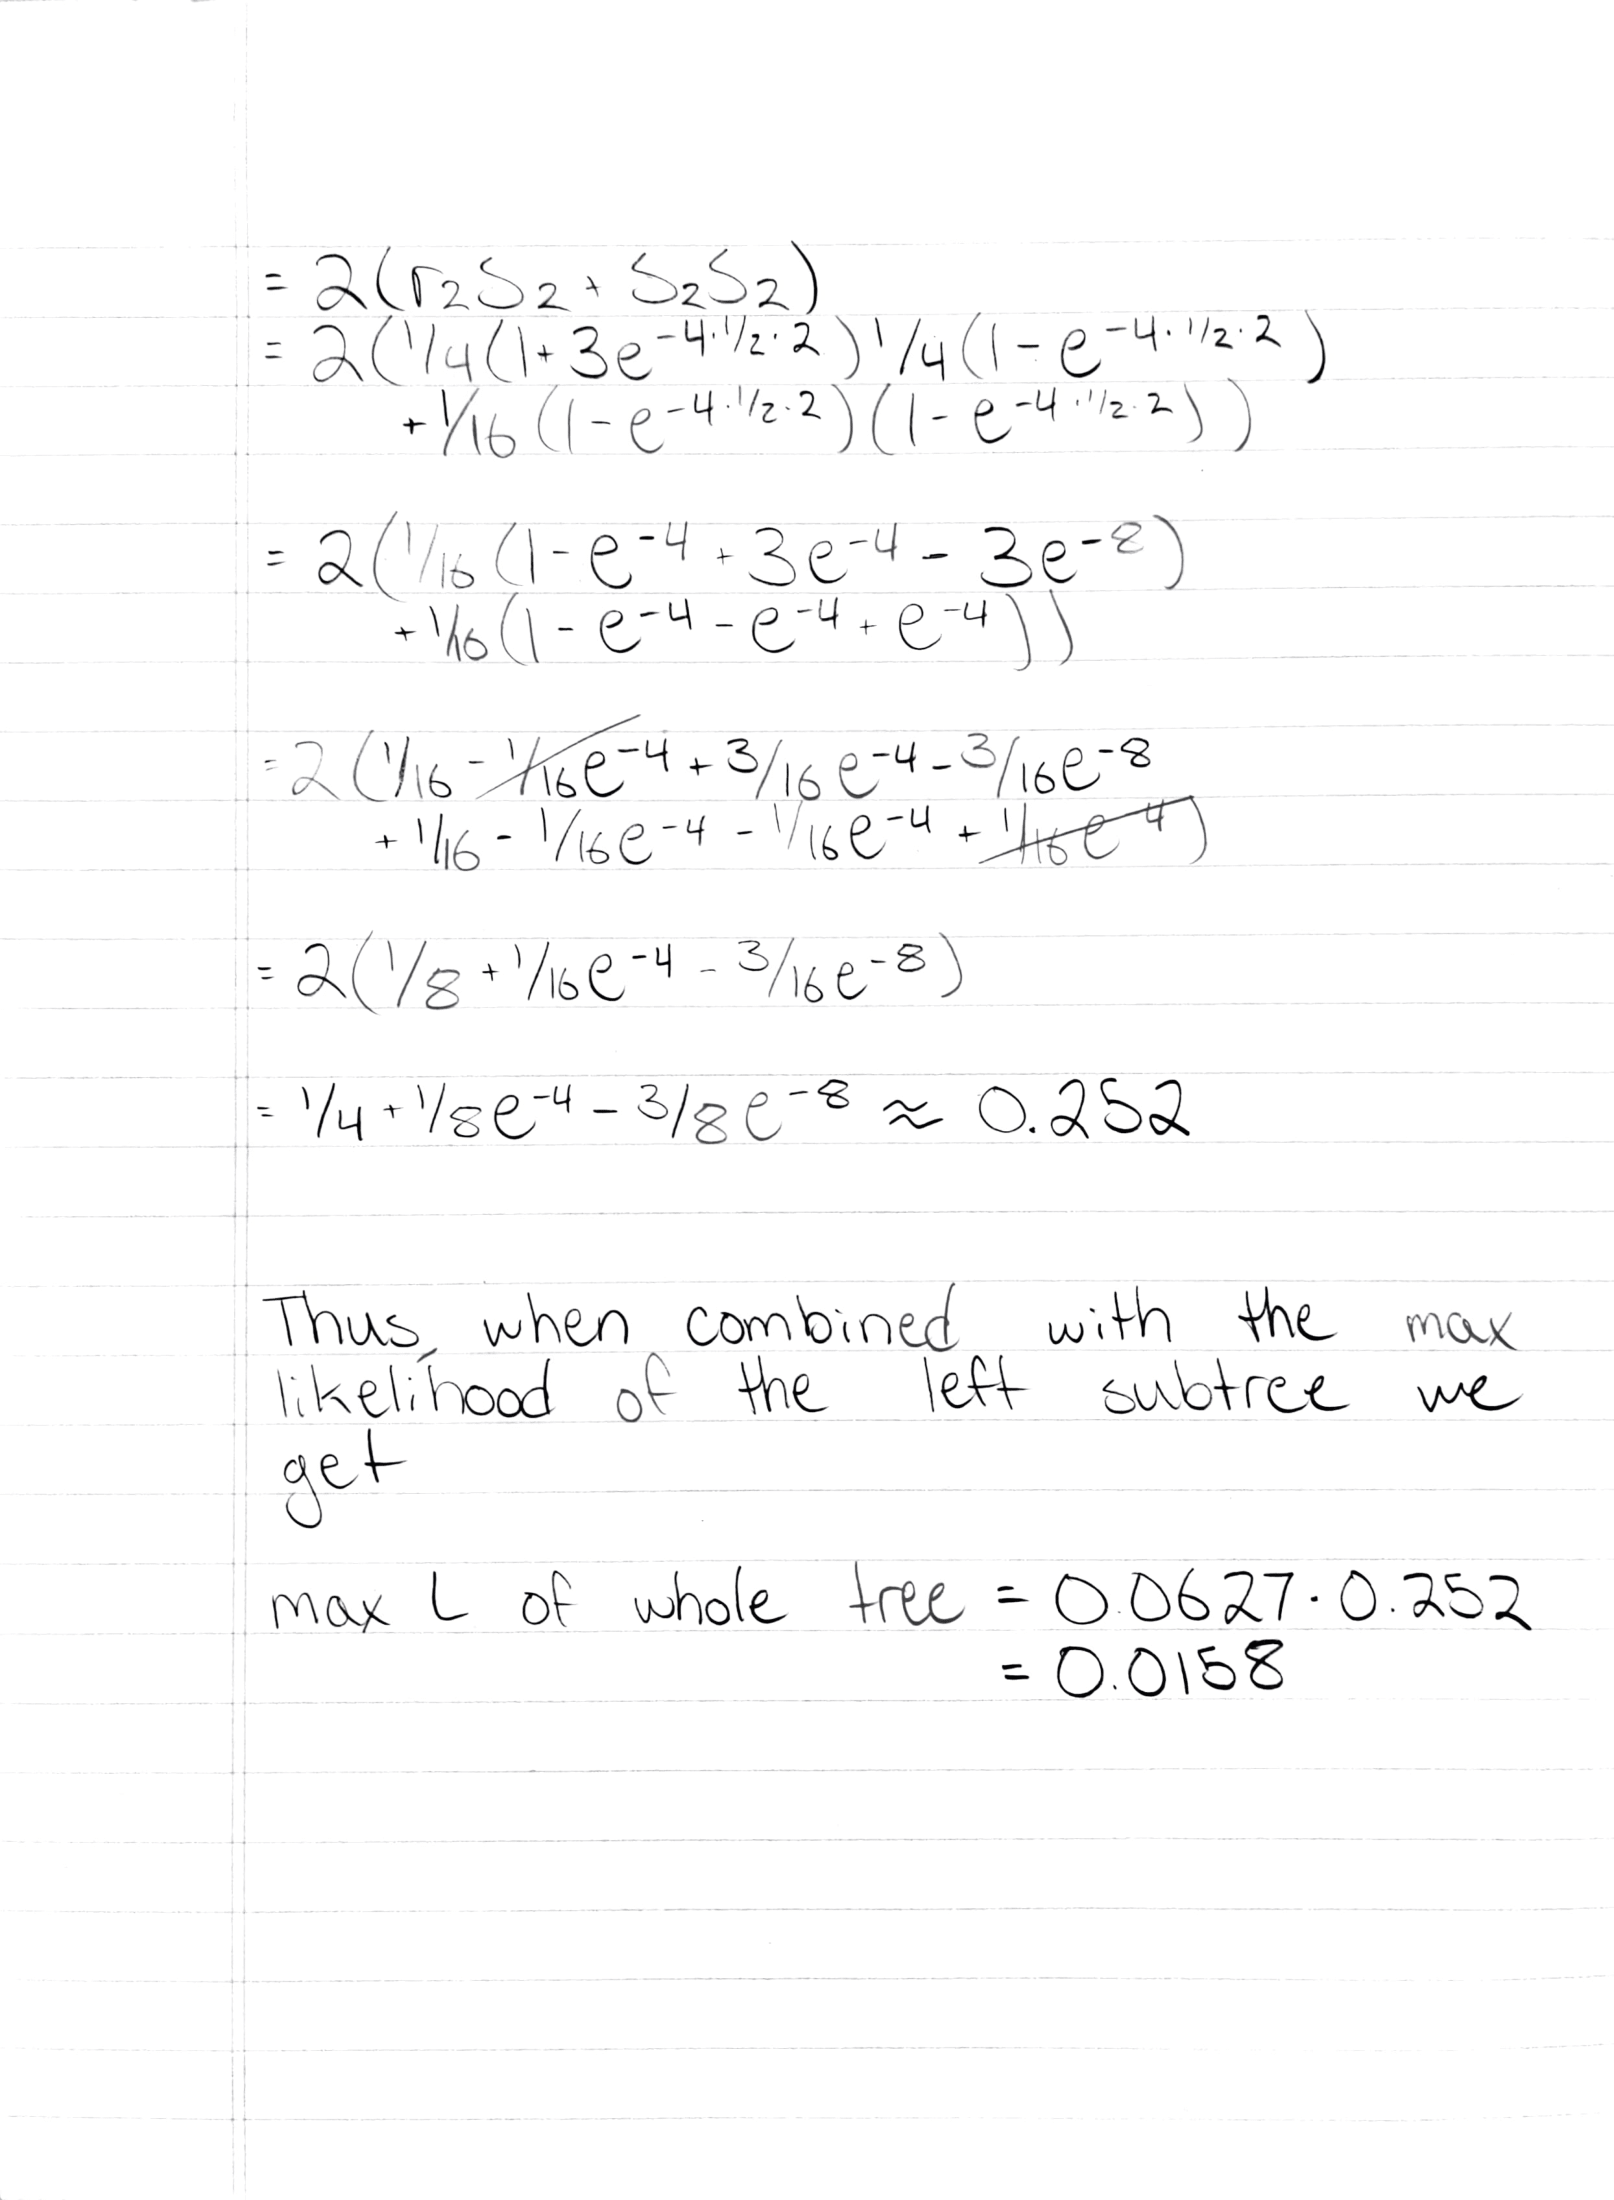 = 2(r₂S₂ + S₂S₂)
= 2(1/4(1+3e^-4·1/2·2)1/4(1-e^-4·1/2·2)
+1/16(1-e^-4·1/2·2)(1-e^-4·1/2·2))
= 2(1/16(1-e^-4+3e^-4-3e^-8)
+1/16(1-e^-4-e^-4+e^-4))
=2(1/16-1/16e^-4+3/16e^-4-3/16e^-8
+1/16-1/16e^-4-1/16e^-4+1/16e^-4)
=2(1/8+1/16e^-4-3/16e^-8)
=1/4+1/8e^-4-3/8e^-8≈0.252
Thus, when combined with the max
likelihood of the left subtree we
get
max L of whole tree = 0.0627·0.252
= 0.0158